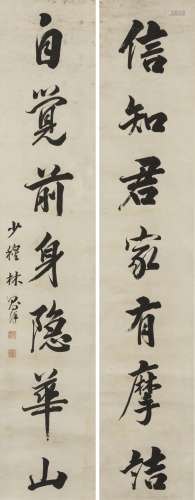 信知君家有摩詰
自覺前身隐華山
少穆林則徐